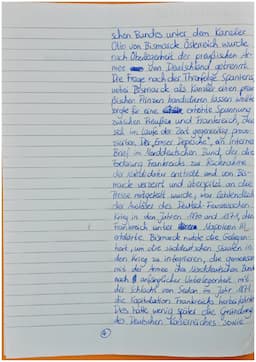 schen Bundes unter dem Kanzler
Otto von Bismarck. Österreich wurde
nach Überlegenheit der preußischen Ar-
mee von Deutschland getrennt.
Die Frage nach der Thronfolge Spaniens,
wobei Bismarck als Kanzler einen preu-
ßischen Prinzen kandidieren lassen wollte
sorgte für eine erhöhte Spannung
zwischen Preußen und Frankreich, die
sei im Laufe der Zeit gegenseitig provo-
zierten. Die "Emser Depesche", ein interner
Brief im Norddeutschen Bund, der die
Forderung Frankreichs zur Rücknahme
der Kandidatur enthielt und von Bis-
marck verkürzt und überspitzt an die
Presse mitgeteilt wurde, war letztendlich
der Auslöser des Deutsch-Französischen
Krieg in den Jahren 1870 und 1871, den
Frankreich unter Napoleon III.
erklärte. Bismarck nutzte die Gelegen-
heit, um die süddeutschen Staaten in
den Krieg zu integrieren, die gemeinsam
mit der Armee des Norddeutschen Bundes
nach anfänglicher Unterlegenheit, mit
der Schlacht von Sedan im Jahr 1871
die Kapitulation Frankreichs herbeiführten.
Dies hatte wenig später die Gründung
des Deutschen Kaiserreiches sowie